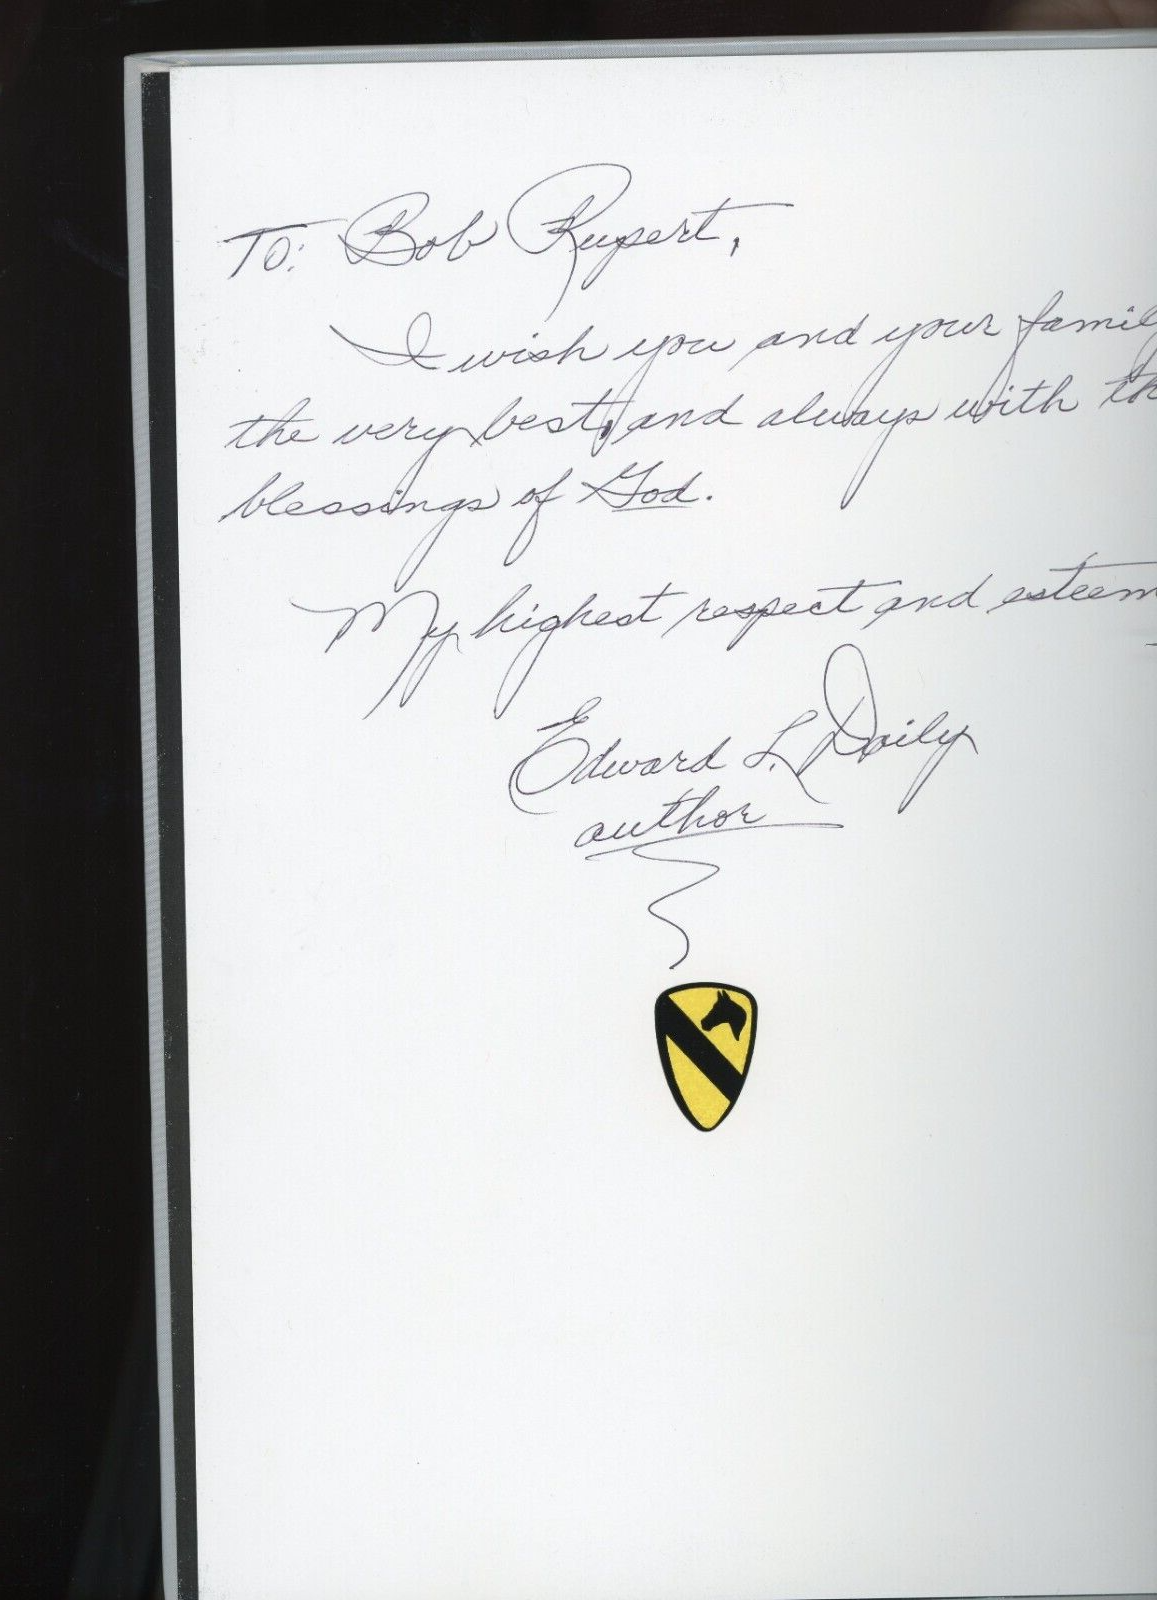 To: Bob Rupert,
I wish you and your family
the very best, and always with the
blessings of God.
My highest respect and esteem
Edward L. Daily
author